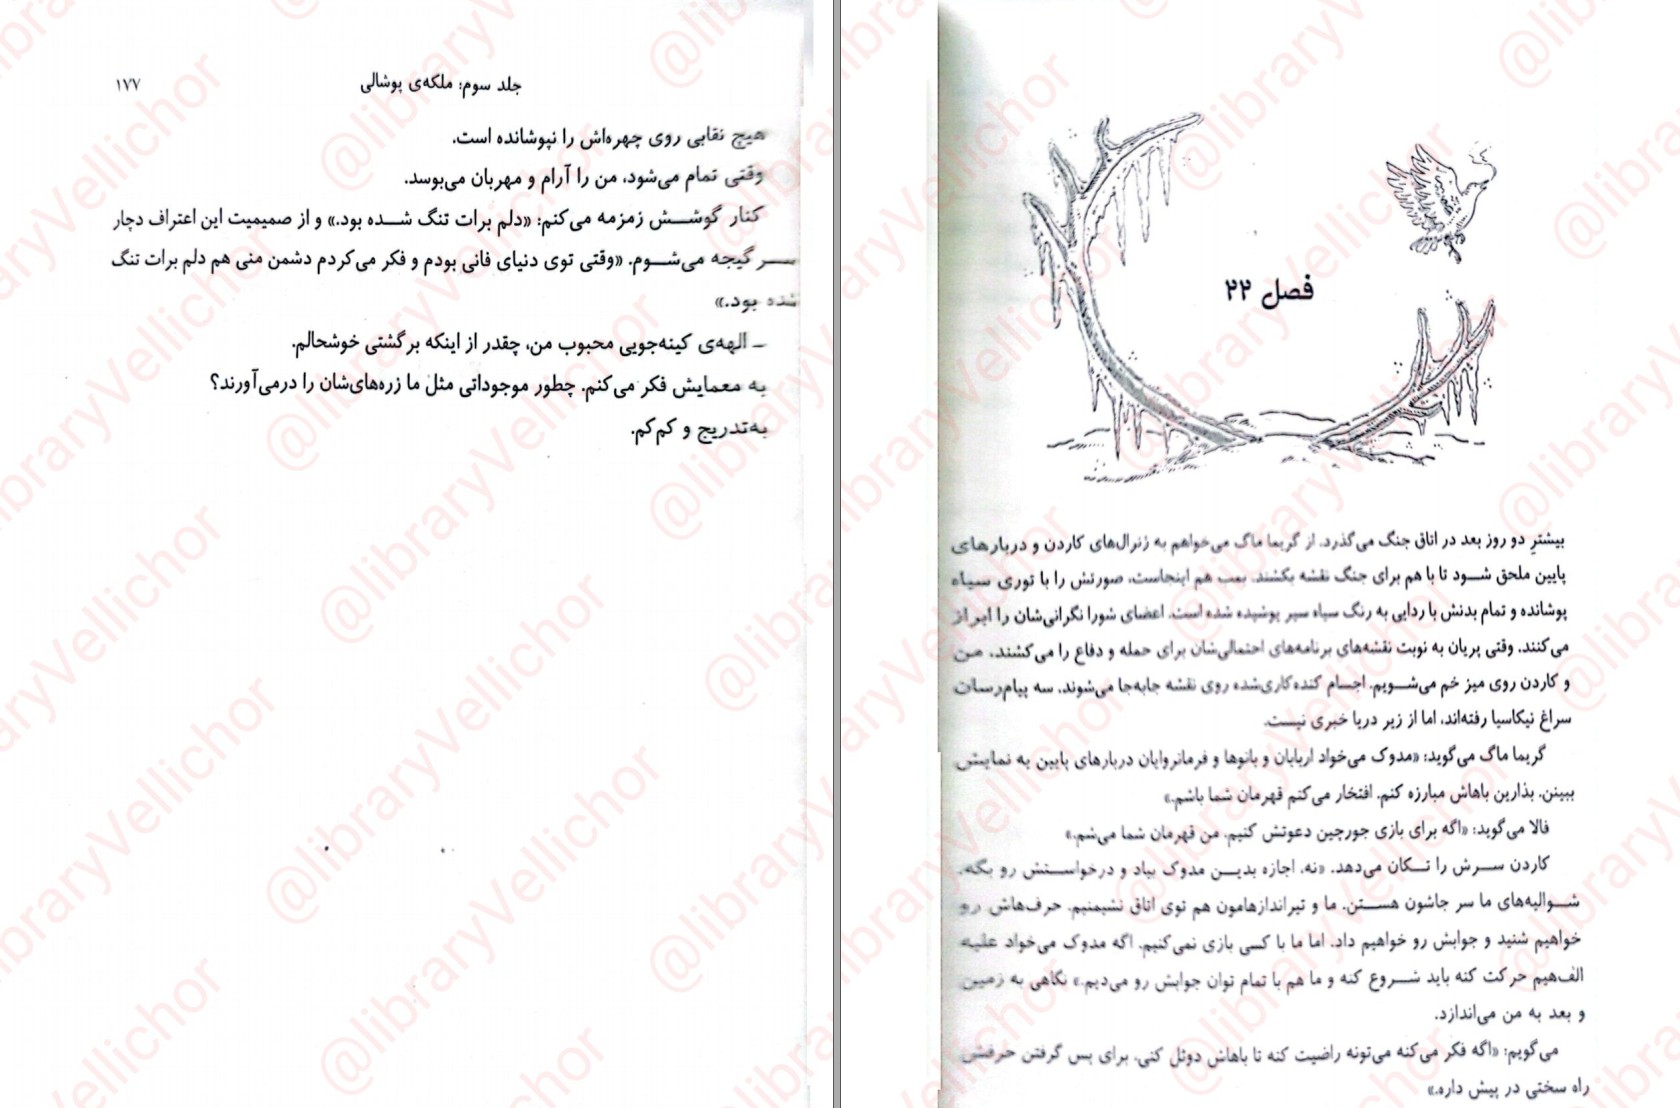 جلد سوم: ملکه‌ی پوشالی
۱۷۷
هیچ نقابی روی چهره‌اش را نپوشانده است.
وقتی تمام می‌شود، من را آرام و مهربان می‌بوسد.
کنار گوشش زمزمه می‌کنم: «دلم برات تنگ شده بود.» و از صمیمیت این اعتراف دچار
سرگیجه می‌شوم. «وقتی توی دنیای فانی بودم و فکر می‌کردم دشمن منی هم دلم برات تنگ
شده بود.»
ـ الهه‌ی کینه‌جویی محبوب من، چقدر از اینکه برگشتی خوشحالم.
به معمایش فکر می‌کنم. چطور موجوداتی مثل ما زره‌های‌شان را درمی‌آورند؟
به‌تدریج و کم‌کم.
فصل ۲۲
بیشترِ دو روز بعد در اتاق جنگ می‌گذرد. از گریما ماگ می‌خواهم به ژنرال‌های کاردن و دربارهای
پایین ملحق شود تا با هم برای جنگ نقشه بکشند. بمب هم اینجاست، صورتش را با توری سیاه
پوشانده و تمام بدنش با ردایی به رنگ سیاه سیر پوشیده شده است. اعضای شورا نگرانی‌شان را ابراز
می‌کنند. وقتی پریان به نوبت نقشه‌های برنامه‌های احتمالی‌شان برای حمله و دفاع را می‌کشند، من
و کاردن روی میز خم می‌شویم. اجسام کنده‌کاری‌شده روی نقشه جابه‌جا می‌شوند. سه پیام‌رسان
سراغ نیکاسیا رفته‌اند، اما از زیر دریا خبری نیست.
گریما ماگ می‌گوید: «مدوک می‌خواد اربابان و بانوها و فرمانروایان دربارهای پایین یه نمایش
ببینن. بذارین باهاش مبارزه کنم. افتخار می‌کنم قهرمان شما باشم.»
فالا می‌گوید: «اگه برای بازی جورچین دعوتش کنیم، من قهرمان شما می‌شم.»
کاردن سرش را تکان می‌دهد. «نه، اجازه بدین مدوک بیاد و درخواستش رو بگه.
شوالیه‌های ما سر جاشون هستن. ما و تیراندازهامون هم توی اتاق نشیمنیم. حرف‌هاش رو
خواهیم شنید و جوابش رو خواهیم داد. اما ما با کسی بازی نمی‌کنیم. اگه مدوک می‌خواد علیه
الف‌هیم حرکت کنه باید شروع کنه و ما هم با تمام توان جوابش رو می‌دیم.» نگاهی به زمین
و بعد به من می‌اندازد.
می‌گویم: «اگه فکر می‌کنه می‌تونه راضیت کنه تا باهاش دوئل کنی، برای پس گرفتن حرفش
راه سختی در پیش داره.»
@libraryVellichor